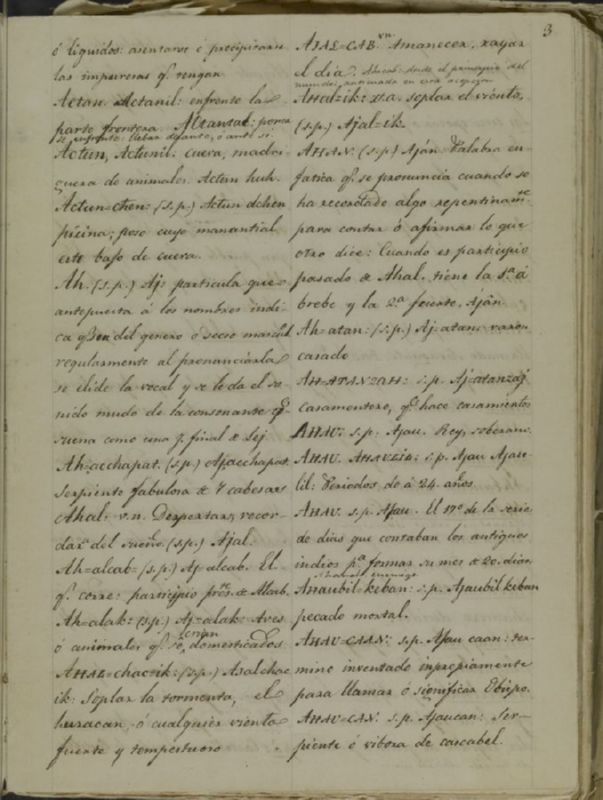 3
ó liquidos: asentarse ó precipitarse
las impurezas qᵉ tengan
Actan. Actanil: enfrente la
parte frontera. Altantal: ponerse
enfrente llevar delante, ó ante sí
Actun, Actunil: cueva, madri-
guera de animales. Actun huh.
Actun=chen: (s.p.) Actun dchen
piscina; poso cuyo manantial
este bajo de cueva.
Ah. (s.p.) Aj: particula que
antepuesta á los nombres indi-
ca qᵉ son del genero ó secso mascul
regularmente al pronunciarla
se elide la vocal y se le da el so-
nido mudo de la consonante qᵉ
suena como una j. final de Lej
Ah=acchapat. (s.p.) Ajacchapat.
Serpiente fabulosa de 7 cabesas
Ahal. v.n. Despertar, recor-
dar del sueño. (s.p.) Ajal.
Ah=alcab=(s.p.) Aj-alcab. El
qᵉ corre: participio presᵗᵉ de Alcab.
Ah=alak: (s.p.) Aj=alak. Aves
ó animales qᵉ se crian domesticados
AHAL=chac=ik: (s.p.) Asalchac
ik: Soplar la tormenta, el
huracan, ó cualquier viento
fuerte y tempestuoso
AJAL=CAB. vn. Amanecer, rayar
el dia. desde el principio del
mundo,
AHALik: v.a. soplar el viento,
(s.p.) Ajal=ik.
AHAN. (s.p.) Aján. Palabra en-
fatica qᵉ se pronuncia cuando se
ha recordado algo repentinamᵗᵉ
para contar ó afirmar lo que
otro dice: Cuando es participio
pasado de Ahal. tiene la 1ª á
brebe y la 2.ª fuerte. Aján.
Ah=atan: (s.p.) Aj-atan: varon
casado
AH=ATANZAH: s.p. Aj=atanzaj.
Casamentero, qᵉ hace casamientos
AHAU: s.p. Ajau. Rey, soberano.
AHAU. AHAULIL: s.p. Ajau Ajau-
lil: Periodos de á 24. años.
AHAU. s.p. Ajau. El 17º de la serie
de dias que contaban los antiguos
indios pª formar su mes de 20. dias.
Ahaubil keban: s.p. Ajaubil keban
pecado mortal.
AHAU-CAAN: s.p. Ajau caan: ter-
mino inventado impropiamente
para llamar ó significar Obispo.
AHAU=CAN: s.p. Ajaucan: Ser-
piente ó vibora de cascabel.